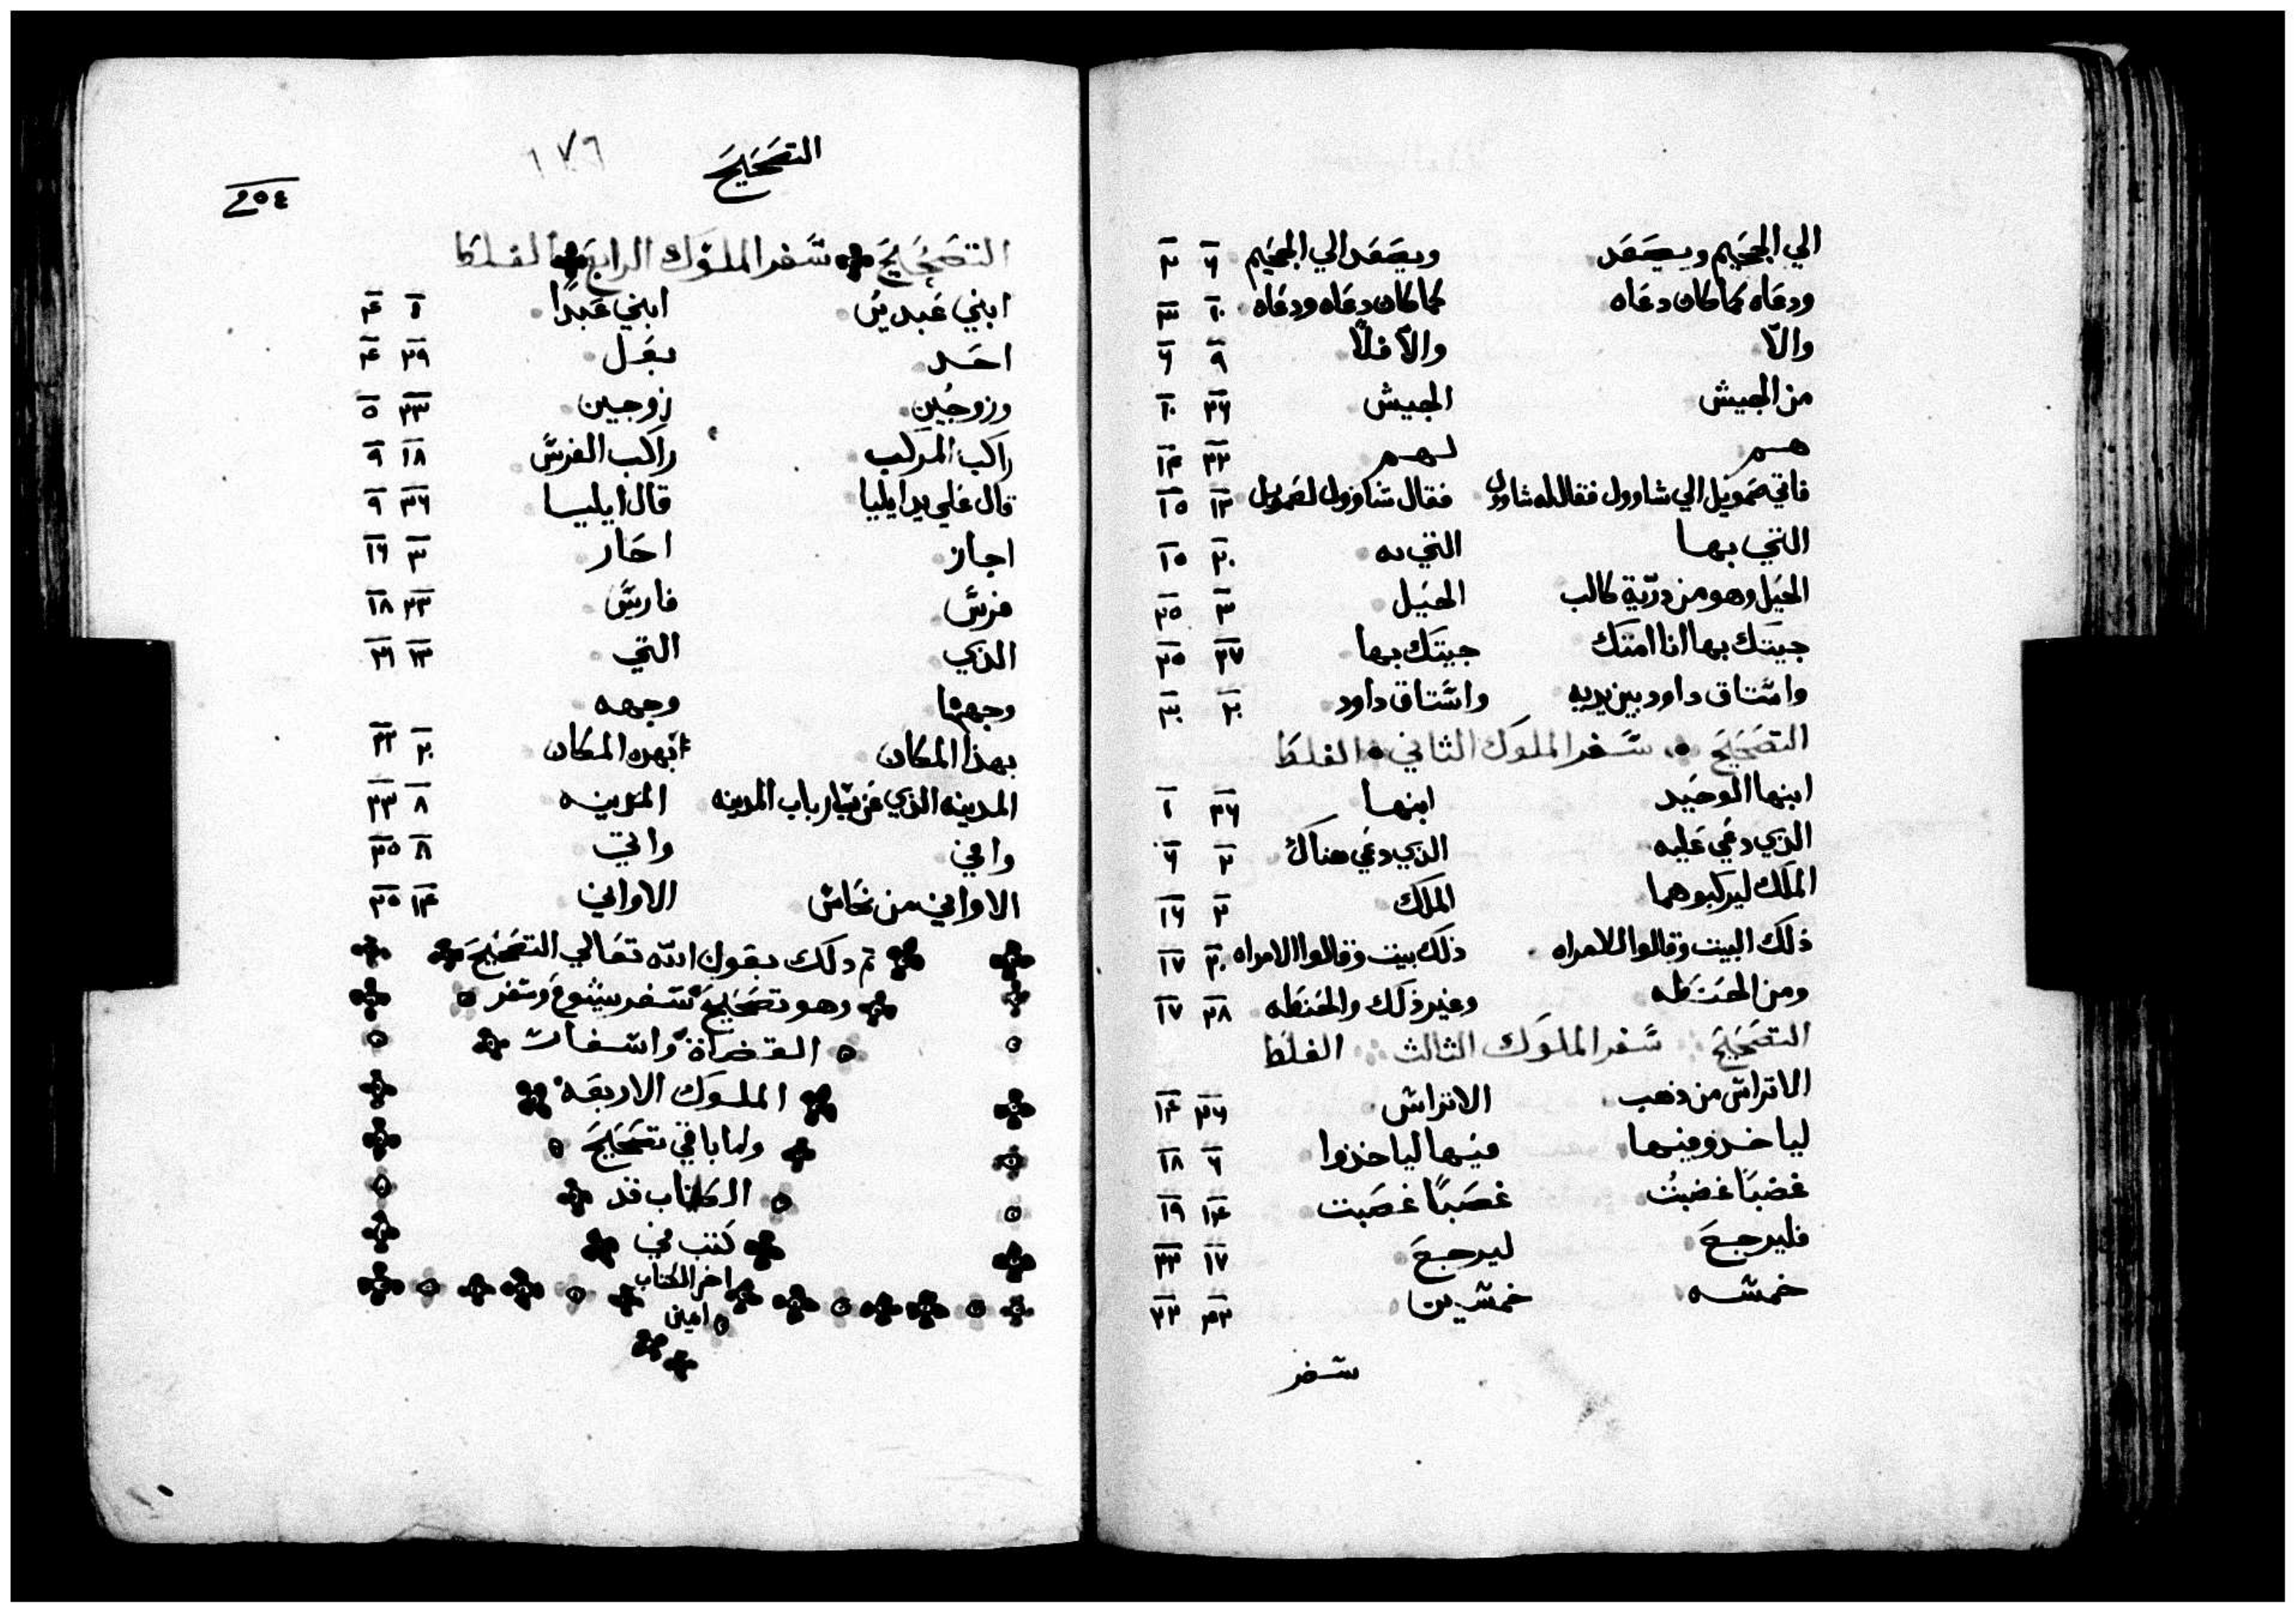 الي الجحيم ويصعد ويصعد الي الجحيم ٦ ٢
ودعاه كما كان دعاه كما كان دعاه ودعاه ١٠ ٣
والّا والّا فلّا ٩ ٦
من الجيش الجيش ٢٦ ١٠
هم لهم ٢٢ ١٤
فاتي صمويل الي شاوول فقال له شاوول فقال شاوول لصمويل ١٣ ١٥
التي بها التي به ٢٠ ١٥
الحيل وهو من ذرّية كالب الحيل ٣ ٢٥
جيتك بها انا امتك جيتك بها ٢٧ ٢٥
واستاق داود بين يديه واستاق داود ٢٠ ٣٠
التصحيح سفر الملوك الثاني الغلط
ابنها الوحيد ابنها ٢٦ ١
الذي دعي عليه الذي دعي هناك ٢ ٦
الملك ليركبوهما الملك ٢ ١٦
ذلك البيت وقالوا للامراه ذلك بيت وقالوا الامراه ٢٠ ١٧
ومن الحنطه وغير ذلك والحنطه ٢٨ ١٧
التصحيح سفر الملوك الثالث الغلط
الاتراس من ذهب الاتراس ٢٦ ١٤
لياخذو منها منها لياخذوا ٦ ١٨
غضبًا غضبتُ غصبًا غصبت ١٤ ١٩
فليرجع ليرجع ١٧ ٢٢
خمسه خمسين
سفر
التصحيح ١٧٦
٢٥٤
التصحيح سفر الملوك الرابع الغلط
ابني عبدين ابني عبدًا ١ ٤
احد بعل ٣٩ ٤
وزوجين زوجين ٢٣ ٥
راكب المركب راكب الفرس ١٨ ٩
قال علي يد ايليا قال ايليسا ٣٦ ٩
اجاز احاز ٣ ١٦
فرس فارس ٢٣ ١٨
الذي التي ١٣ ٢١
وجهها وجهه
بهذا المكان بهده المكان ٢٠ ٢٢
المدينه الذي عن يسار باب المدينه المدينه ٨ ٢٣
وافي واتي ٨ ٢٥
الاواني من نحاس الاواني ١٤ ٢٥
تم دلك بعون الله تعالي التصحيح
وهو تصحيح سفر يشوع وسفر
القضاة واسفار
الملوك الاربعه
ولما باقي تصحيح
الكتاب قد
كتب في
اخر الكتاب
امين